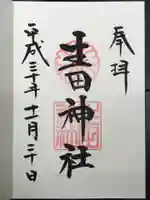 奉拝
生田神社
平成三十年十一月三十日